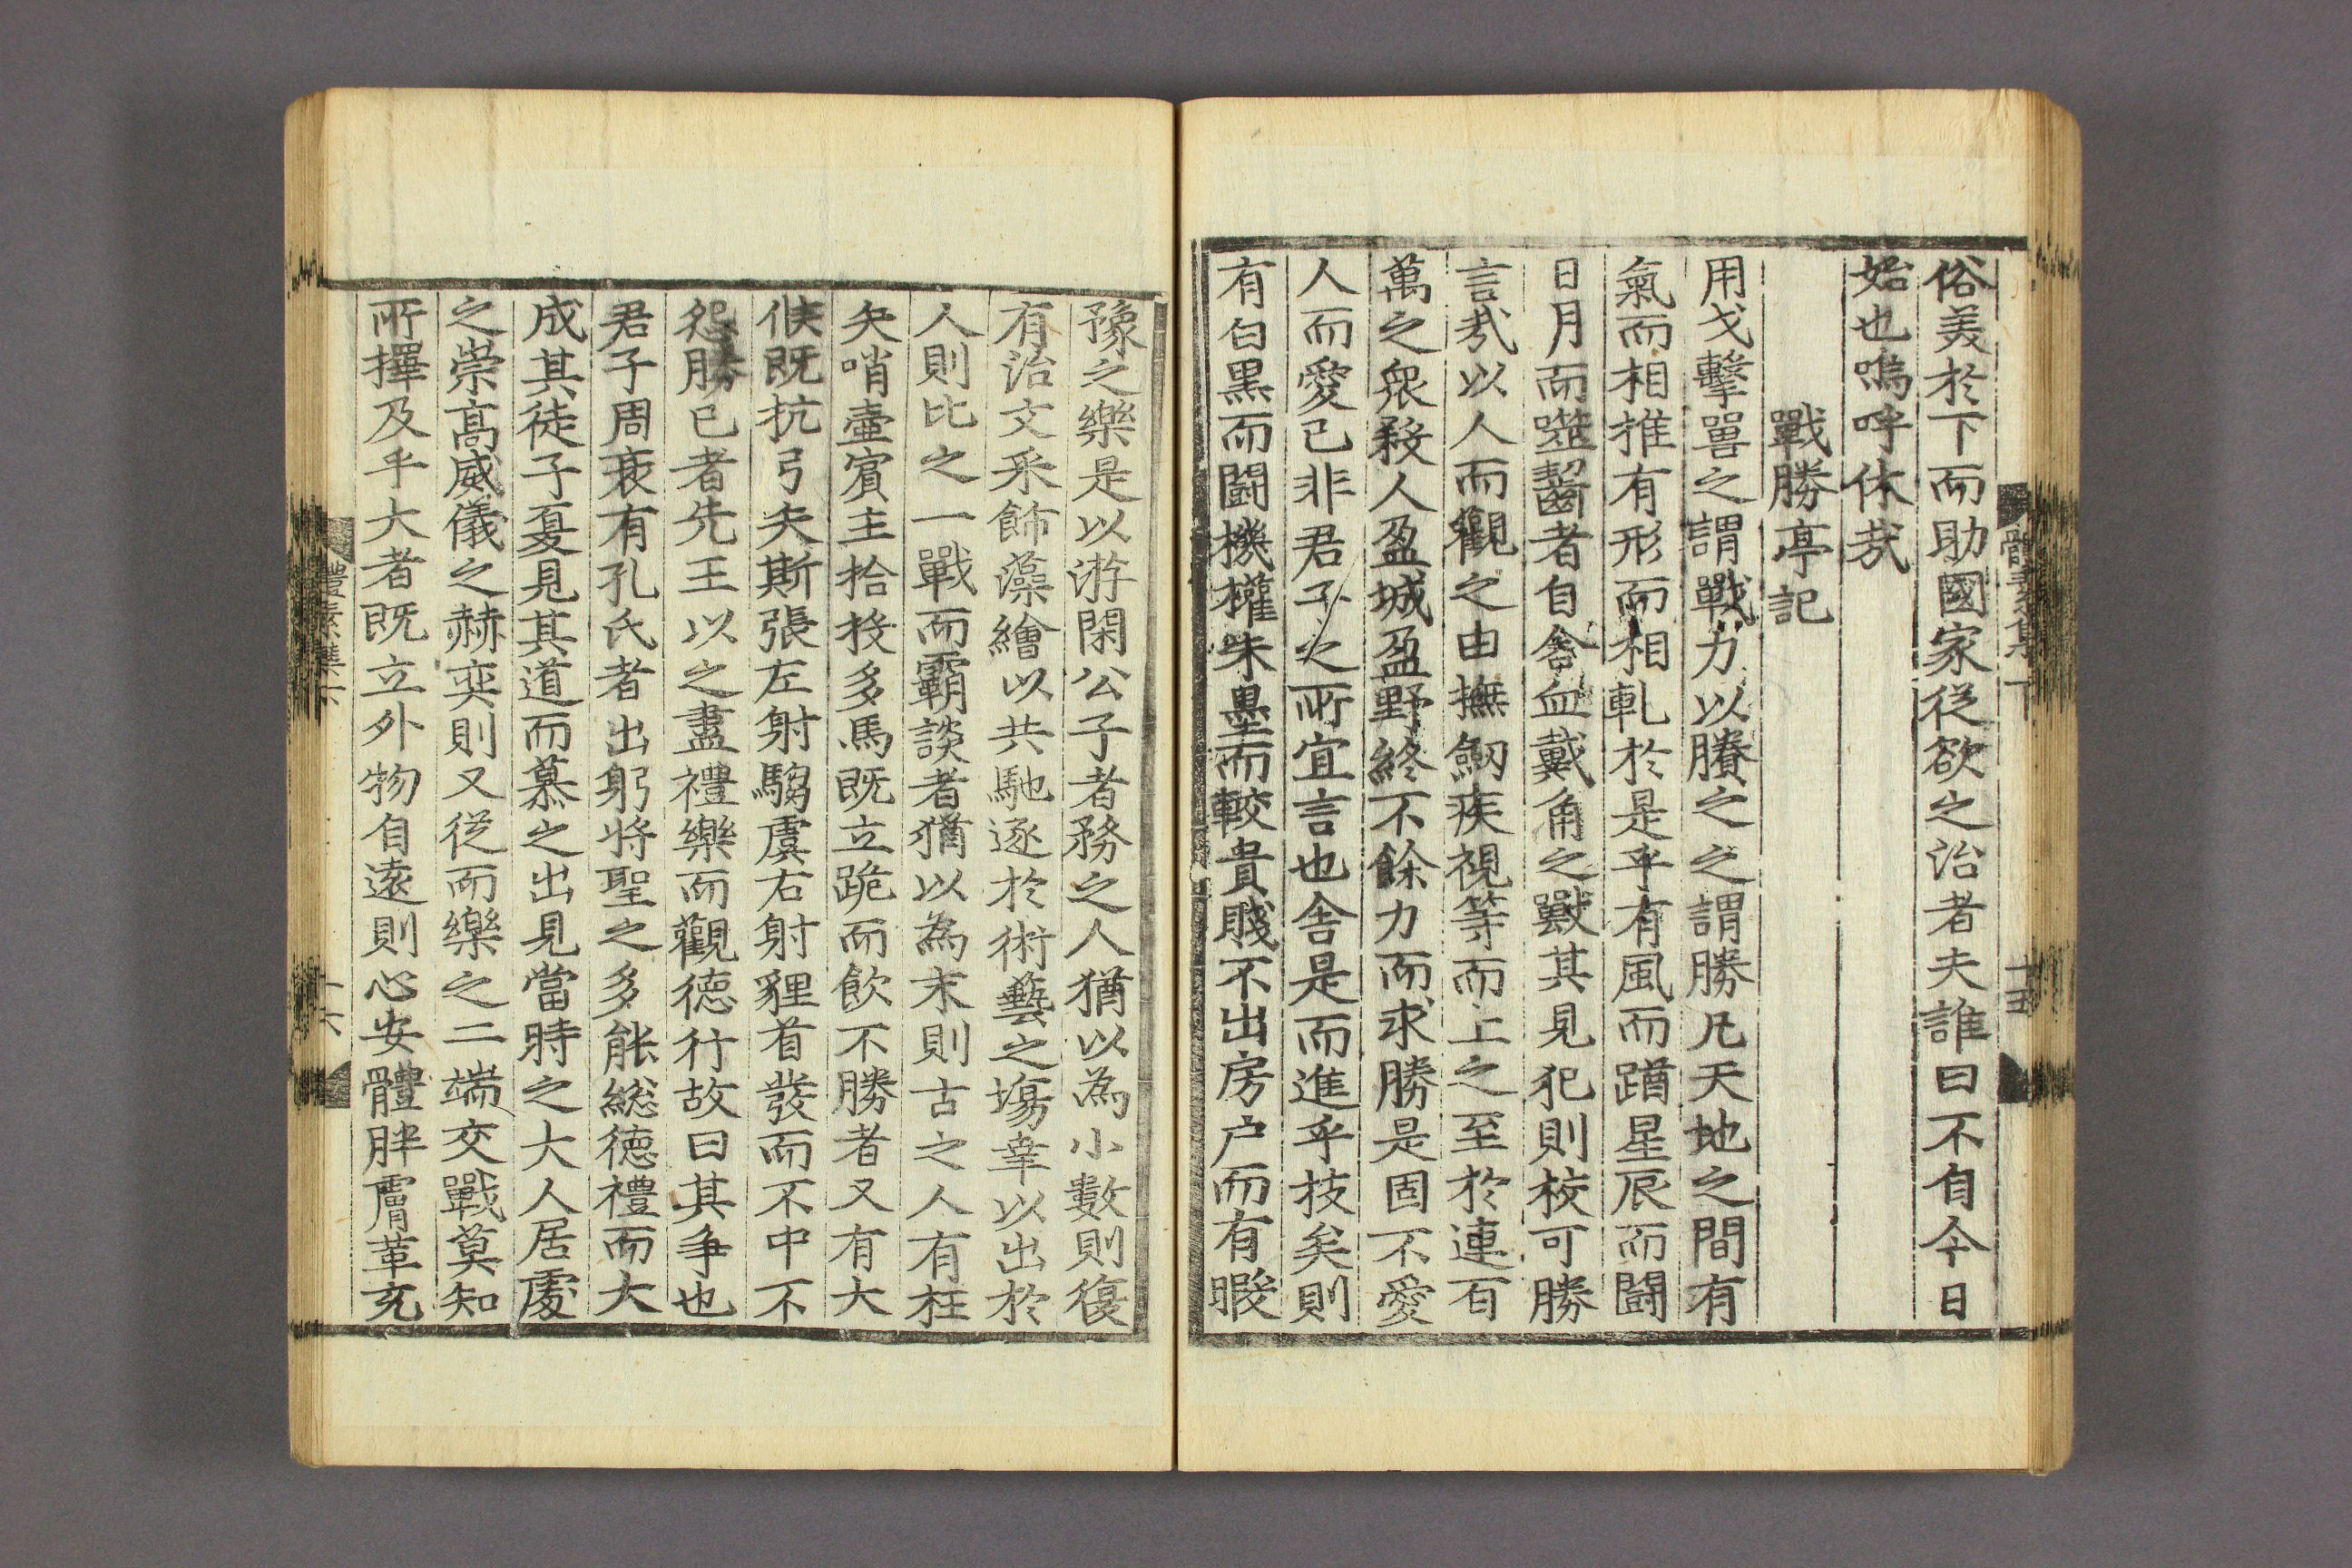 俗美於下而助國家從欲之治者夫誰曰不自今日
始也嗚呼休㢤
戰勝亭記
用戈擊嘼之謂戰力以賸之之謂勝凡天地之間有
氣而相推有形而相軋於是乎有風而蹲星辰而鬪
日月而噬齧者自含血戴角之獸其見犯則校可勝
言㢤以人而觀之由撫劒疾視等而上之至於連百
萬之衆殺人盈城盈野終不餘力而求勝是固不愛
人而愛已非君子之所宜言也舍是而進乎技矣則
有白黒而鬪機權朱墨而較貴賤不出房户而有暇
豫之樂是以游閑公子者務之人猶以為小數則復
有治文采飾藻繪以共馳逐於術藝之塲幸以出於
人則比之一戰而霸談者猶以為末則古之人有枉
矢哨壷賓主拾投多馬既立跪而飲不勝者又有大
侯既抗弓矢斯張左射騶虞右射貍首發而不中不
怨勝已者先王以之盡禮樂而觀德行故曰其爭也
君子周衰有孔氏者出躬將聖之多能總德禮而大
成其徒子夏見其道而慕之出見當時之大人居處
之崇髙威儀之赫奕則又從而樂之二端交戰莫知
所擇及乎大者既立外物自遠則心安體胖膚革充
體素集下
十五
體素集下
十六